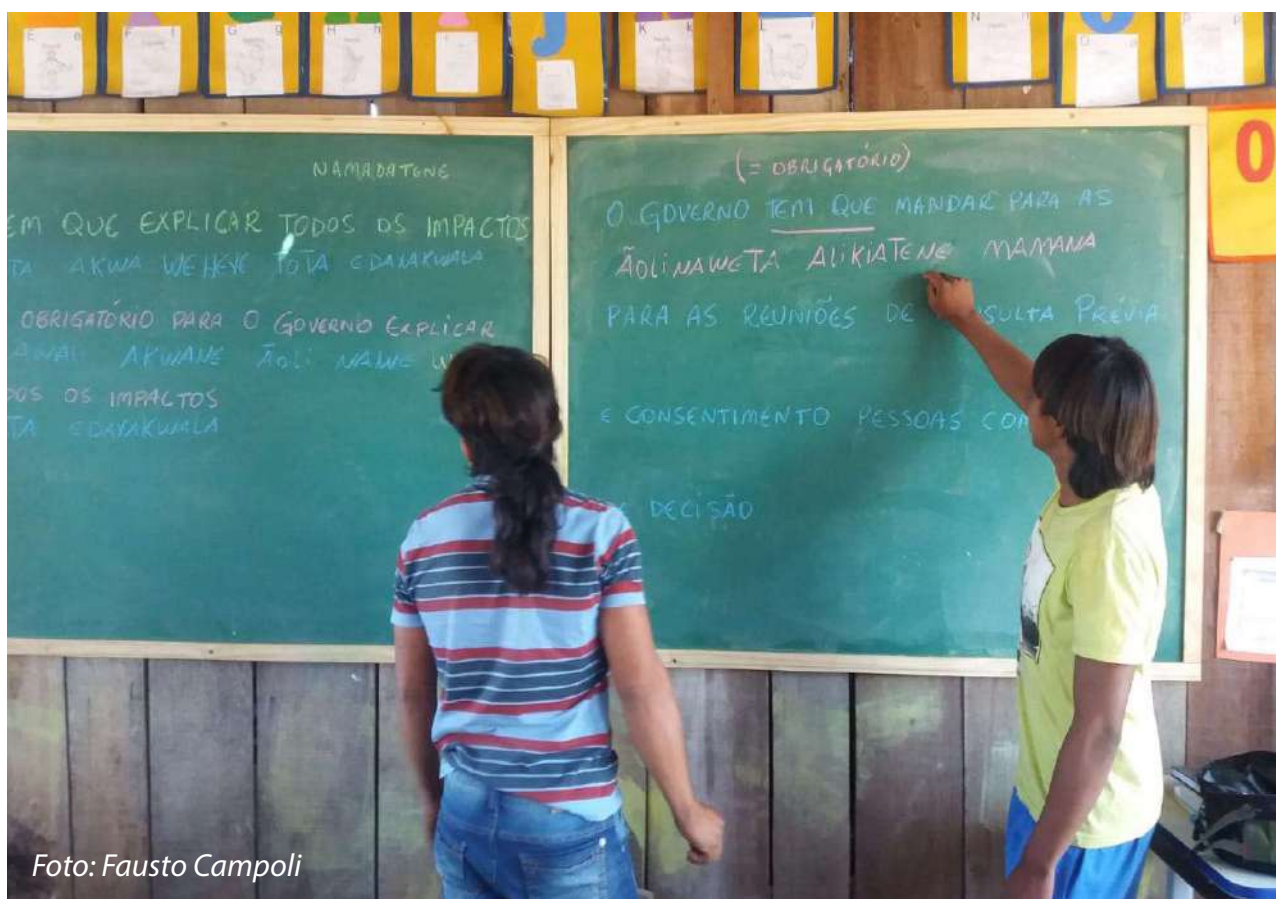 E e
F f
G g
H h
J
K k
L l
N n
O
P p
O
NAMADATENE
EM QUE EXPLICAR TODOS OS IMPACTOS
TA AKWA WEHEYE TOTA EDAYAKWALA
OBRIGATÓRIO PARA O GOVERNO EXPLICAR
AKWANE ÃOLI NAWE
OS IMPACTOS
TA EDAYAKWALA
(= OBRIGATÓRIO)
O GOVERNO TEM QUE MANDAR PARA AS
ÃOLINAWETA ALIKIATENE MAMANA
PARA AS REUNIÕES DE SULTA PRÉVIA
E CONSENTIMENTO PESSOAS COM
DECISÃO
Foto: Fausto Campoli